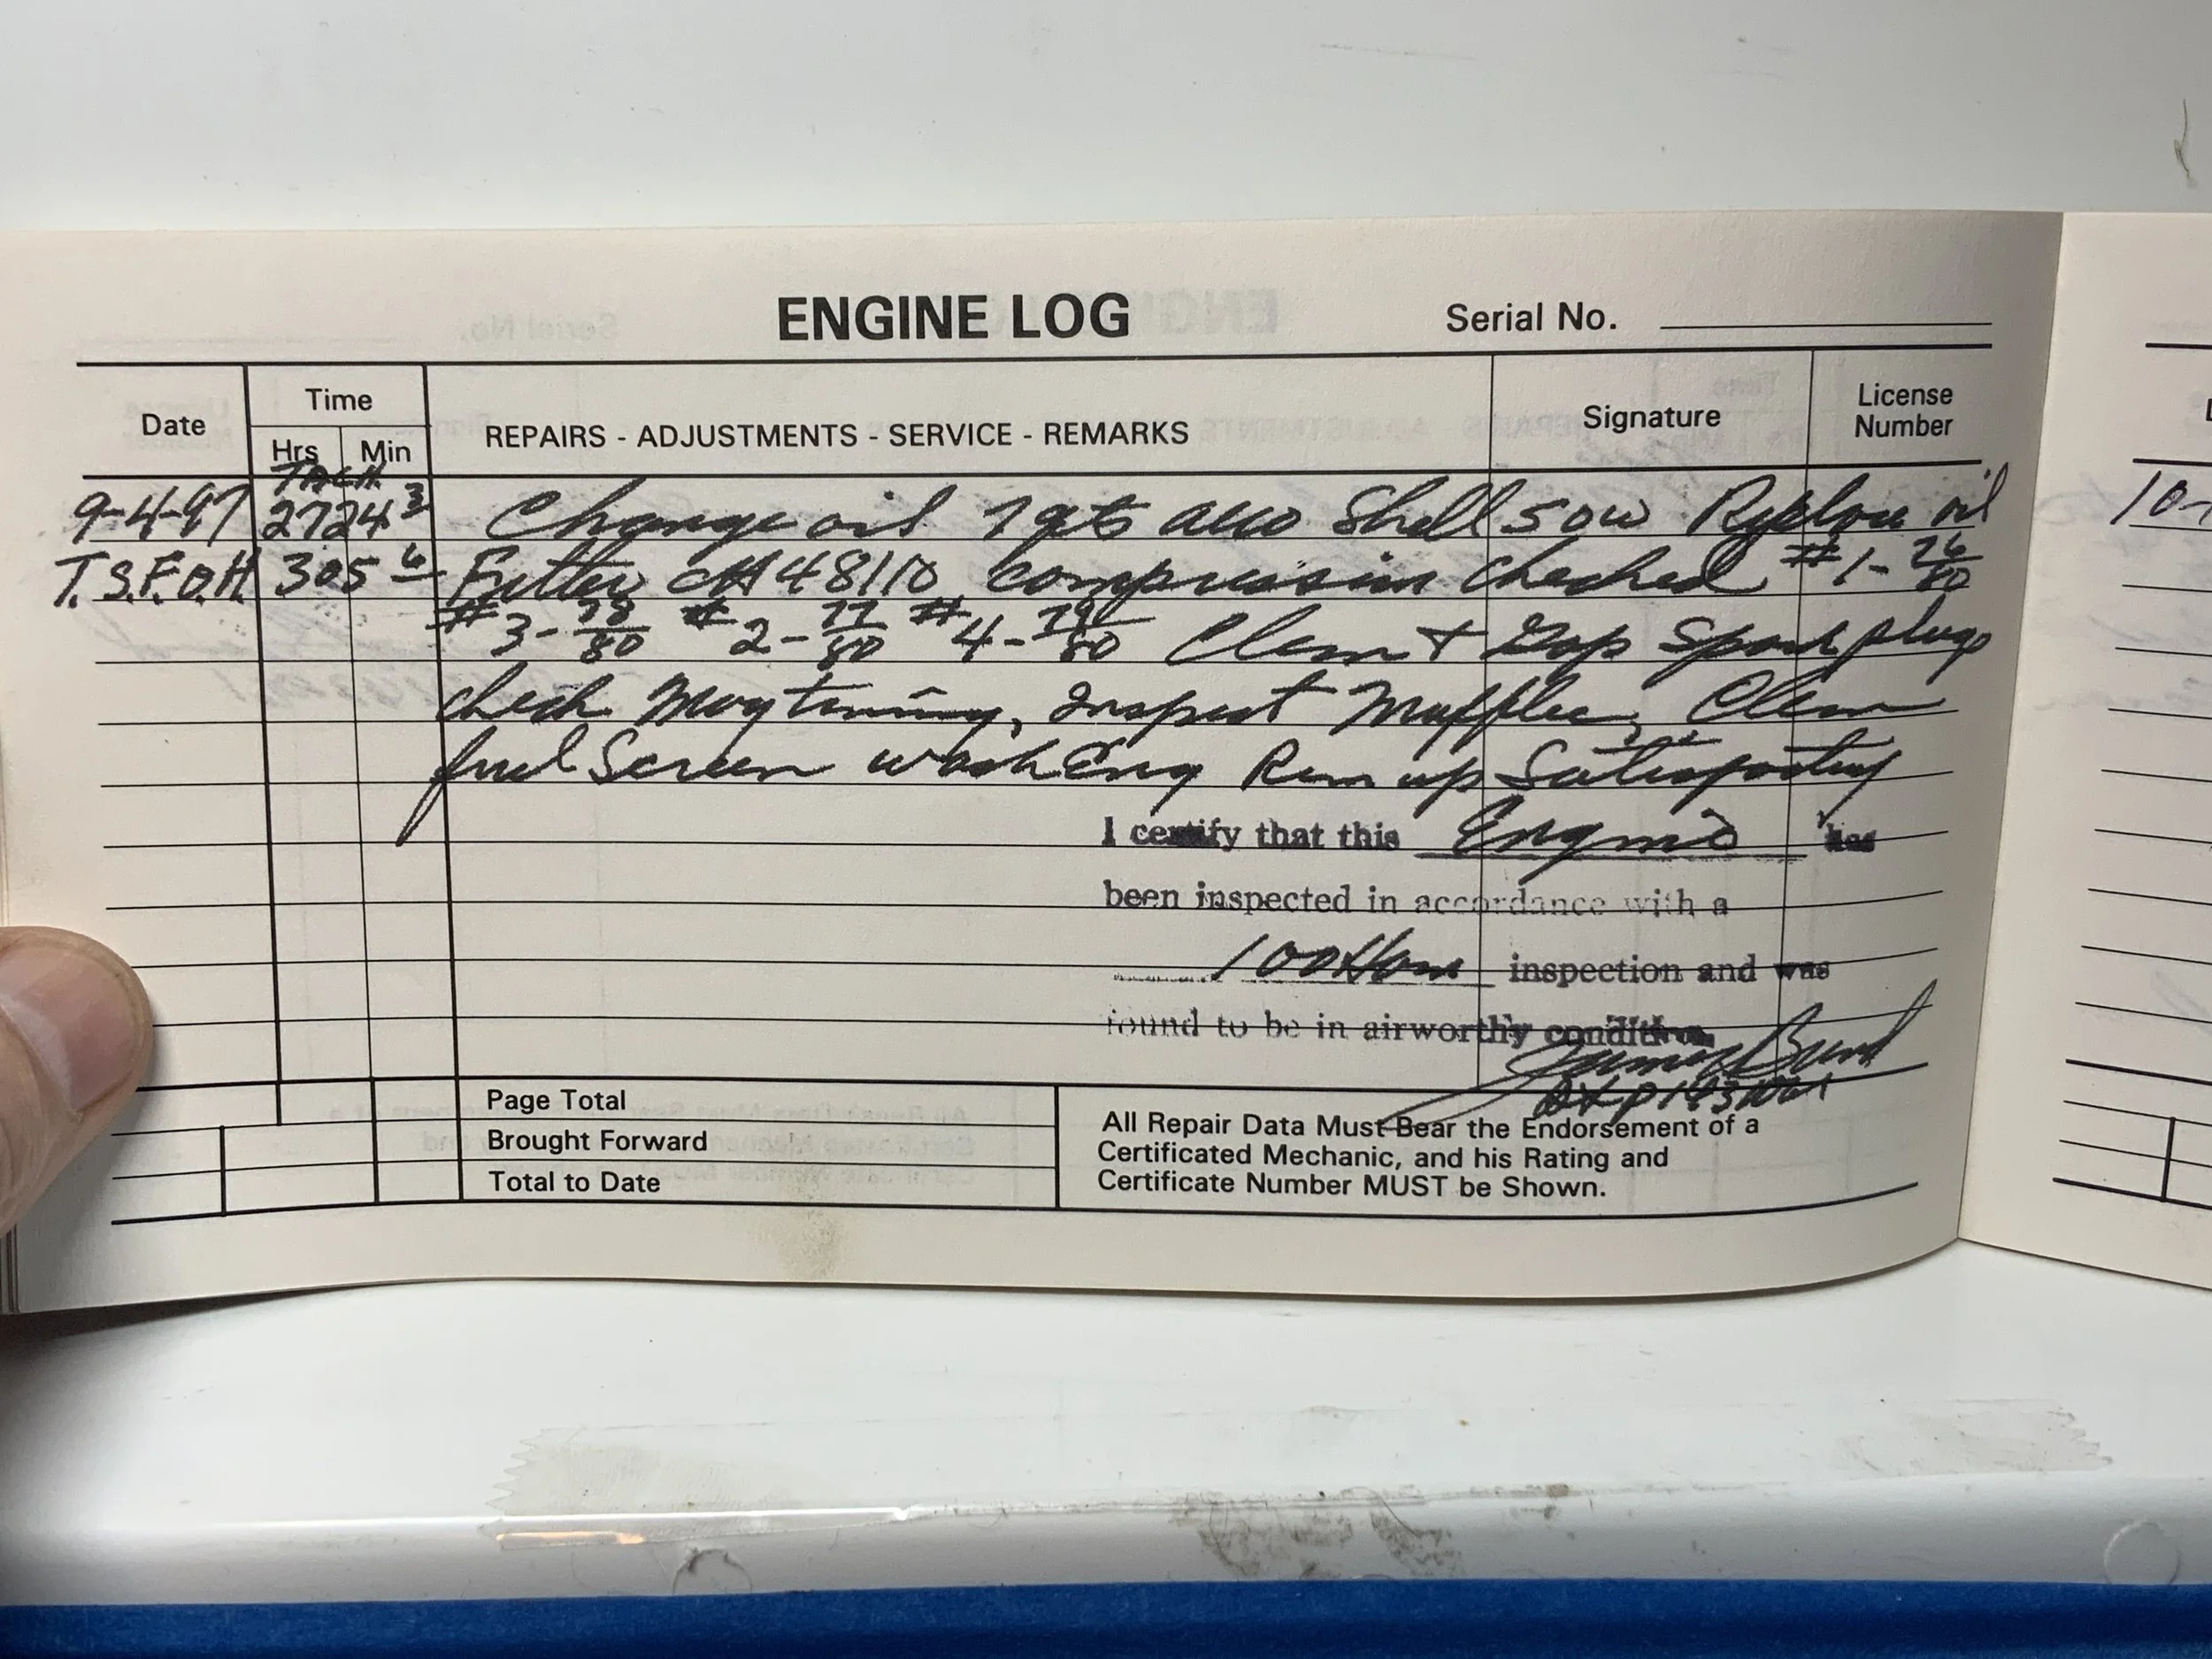 ENGINE LOG Serial No.
Date Time REPAIRS - ADJUSTMENTS - SERVICE - REMARKS Signature License Number
Hrs Min
TACH.
9-4-97 2724 3 Change oil 7 qts Shell 50W Replace oil
T.S.F.O.H. 305 6 Filter CH48110 compression checked #1- 76/80
#3- 78/80 #2- 77/80 #4- /80 Clean + Gap Spark plugs
check Mag timing, Inspect Muffler, Clean
fuel Screen wash Eng Run up Satisfactory
I certify that this Engine has
been inspected in accordance with a
100 Hour inspection and was
found to be in airworthy condition
Page Total
Brought Forward
Total to Date
All Repair Data Must Bear the Endorsement of a
Certificated Mechanic, and his Rating and
Certificate Number MUST be Shown.
10-